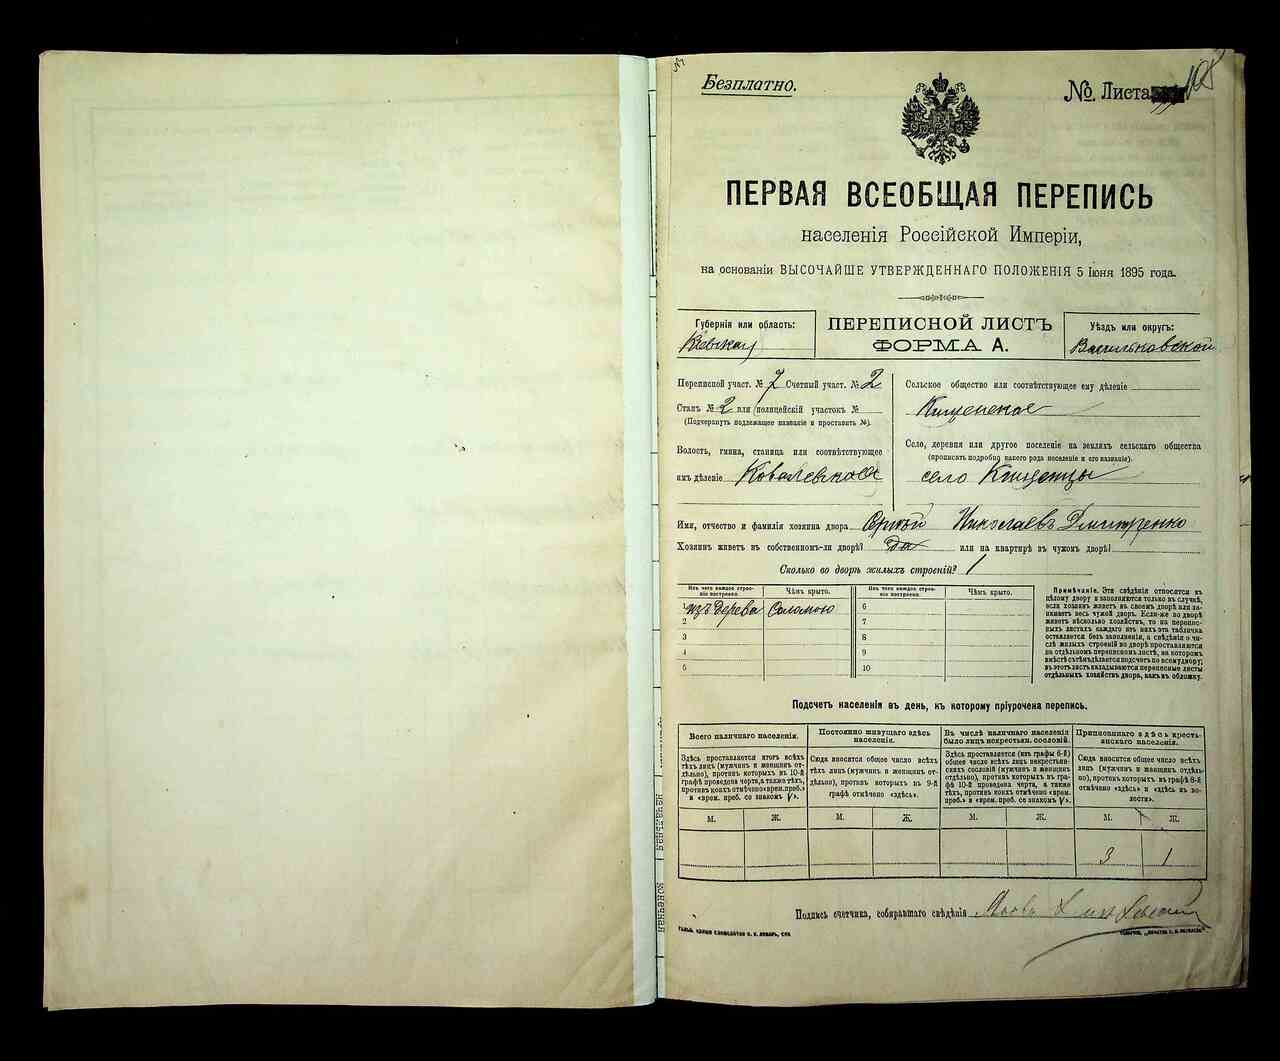 Безплатно.
№ Листа 108
ПЕРВАЯ ВСЕОБЩАЯ ПЕРЕПИСЬ
населенія Россійской Имперіи,
на основаніи ВЫСОЧАЙШЕ УТВЕРЖДЕННАГО ПОЛОЖЕНІЯ 5 Іюня 1895 года.
Губернія или область:
Кіевская
ПЕРЕПИСНОЙ ЛИСТЪ
ФОРМА А.
Уѣздъ или округъ:
Васильковской
Переписной участ. № 7 Счетный участ. № 2
Станъ № 2 или полицейскій участокъ №
(Подчеркнуть подлежащее названіе и проставить №).
Волость, гмина, станица или соотвѣтствующее
имъ дѣленіе Ковалевская
Сельское общество или соотвѣтствующее ему дѣленіе
Село, деревня или другое поселеніе на земляхъ сельскаго общества
(прописать подробно какого рода поселеніе и его названіе).
село
Имя, отчество и фамилія хозяина двора Николаевъ Дмитренко
Хозяинъ живетъ въ собственномъ-ли дворѣ? да или на квартирѣ въ чужомъ дворѣ?
Сколько во дворѣ жилыхъ строеній? 1
Изъ чего каждое строеніе построено.
Чѣмъ крыто.
Изъ чего каждое строеніе построено.
Чѣмъ крыто.
1 изъ дерева Соломою
2
3
4
5
6
7
8
9
10
Примѣчаніе. Эти свѣдѣнія относятся къ
цѣлому двору и заполняются только въ случаѣ,
если хозяинъ живетъ въ своемъ дворѣ или занимаетъ
весь чужой дворъ. Если-же во дворѣ
живетъ нѣсколько хозяйствъ, то на переписныхъ
листахъ каждаго изъ нихъ эта табличка
оставляется безъ заполненія, а свѣдѣнія о числѣ
жилыхъ строеній во дворѣ проставляются
на отдѣльномъ переписномъ листѣ, на которомъ
вмѣстѣ съ тѣмъ дѣлается подсчетъ по всему двору;
въ этотъ листъ вкладываются переписные листы
отдѣльныхъ хозяйствъ двора, какъ въ обложку.
Подсчетъ населенія въ день, къ которому пріурочена перепись.
Всего наличнаго населенія.
Здѣсь проставляется итогъ всѣхъ
тѣхъ лицъ (мужчинъ и женщинъ отдѣльно),
противъ которыхъ въ 10-й
графѣ проведена черта, а также тѣхъ,
противъ коихъ отмѣчено «врем. преб.»
и «врем. преб. со знакомъ V».
Постоянно живущаго здѣсь
населенія.
Сюда вносится общее число всѣхъ
тѣхъ лицъ (мужчинъ и женщинъ отдѣльно),
противъ которыхъ въ 9-й
графѣ отмѣчено «здѣсь».
Въ числѣ наличнаго населенія
было лицъ некрестьян. сословій.
Здѣсь проставляется (изъ графы 6-й)
общее число всѣхъ лицъ некрестьянскихъ
сословій (мужчинъ и женщинъ
отдѣльно), противъ которыхъ въ графѣ
10-й проведена черта, а также
тѣхъ, противъ коихъ отмѣчено «врем.
преб.» и «врем. преб. со знакомъ V».
Приписаннаго здѣсь крестьянскаго
населенія.
Сюда вносится общее число всѣхъ
лицъ (мужчинъ и женщинъ отдѣльно),
противъ которыхъ въ графѣ 8-й
отмѣчено «здѣсь» и «здѣсь въ волости».
М. Ж. М. Ж. М. Ж. М. Ж.
3 1
Подпись счетчика, собиравшаго свѣдѣнія